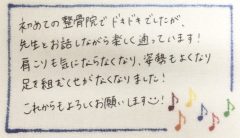 初めての整骨院でドキドキでしたが、
先生とお話しながら楽しく通っています！
肩こりも気にならなくなり、姿勢もよくなり
足を組むくせがなくなりました！
これからもよろしくお願いします☺！